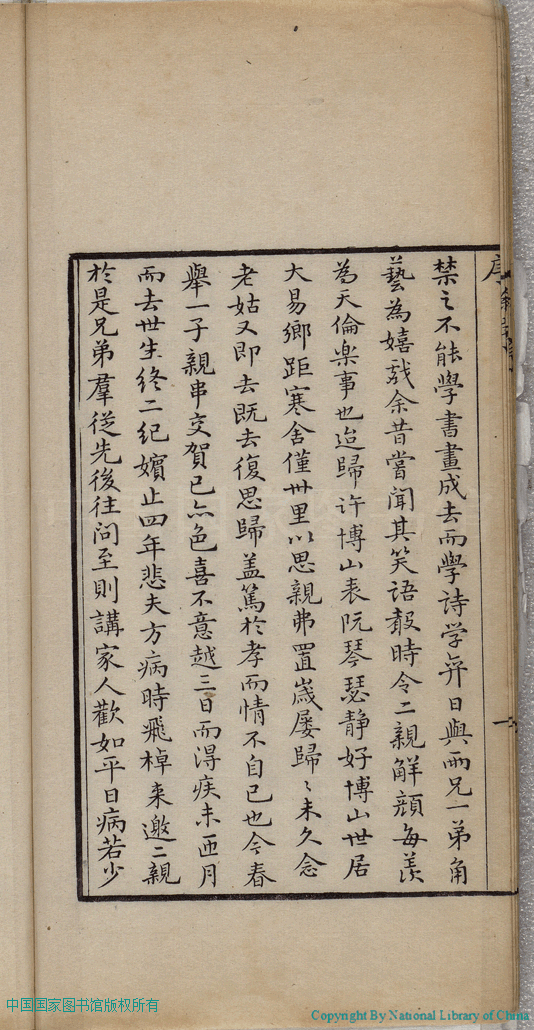 禁之不能學書畫成去而學詩学弈日與兩兄一弟角
藝為嬉戯余昔嘗聞其笑語聲時令二親解顔每羨
為天倫楽事也迨歸許博山表阮琴瑟静好博山世居
大易鄉距寒舍僅卅里以思親弗置嵗屡歸〻未久念
老姑又即去既去復思歸盖篤於孝而情不自已也今春
舉一子親串交賀已亦色喜不意越三日而得疾未匝月
而去世生終二紀嬪止四年悲夫方病時飛棹来邀二親
於是兄弟羣從先後往問至則講家人歡如平日病若少
中国国家图书馆版权所有
Copyright By National Library of China